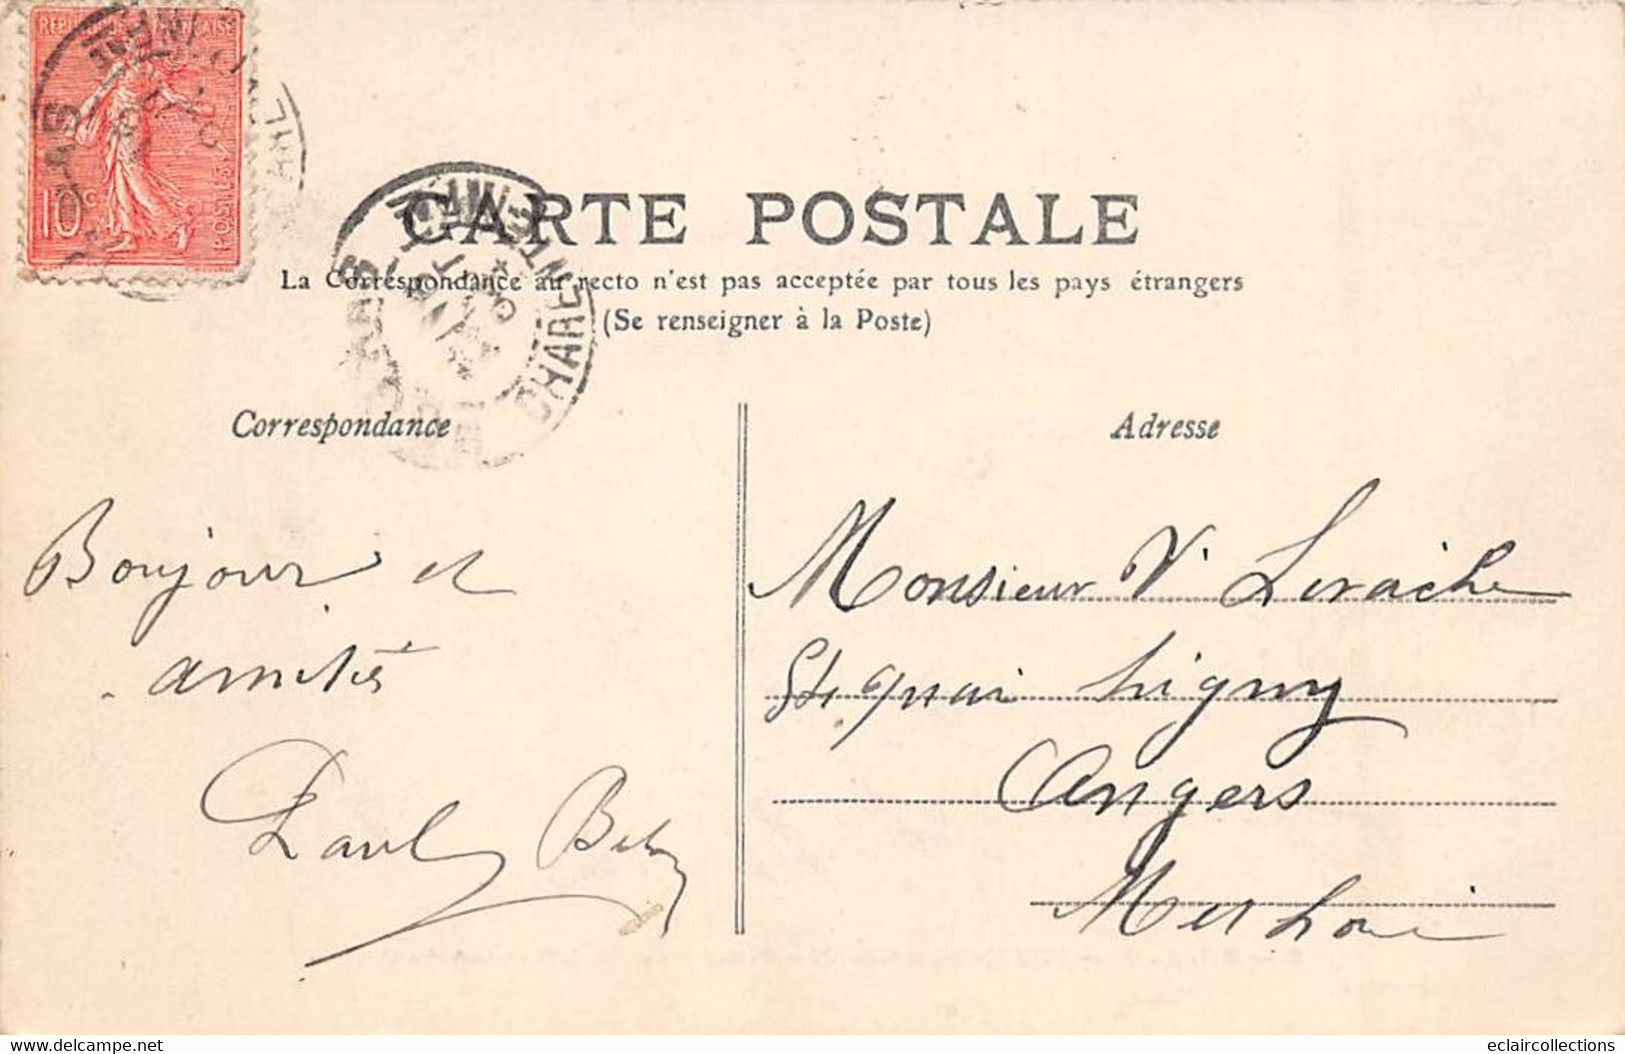 REPUBLIQUE FRANÇAISE
10c
POSTES
CARTE POSTALE
La Correspondance au recto n'est pas acceptée par tous les pays étrangers
(Se renseigner à la Poste)
Correspondance
Bonjour et
amitiés
Paul
Adresse
Monsieur V
quai Ligny
Angers
M et Loire
eclaircollections
delcampe.net